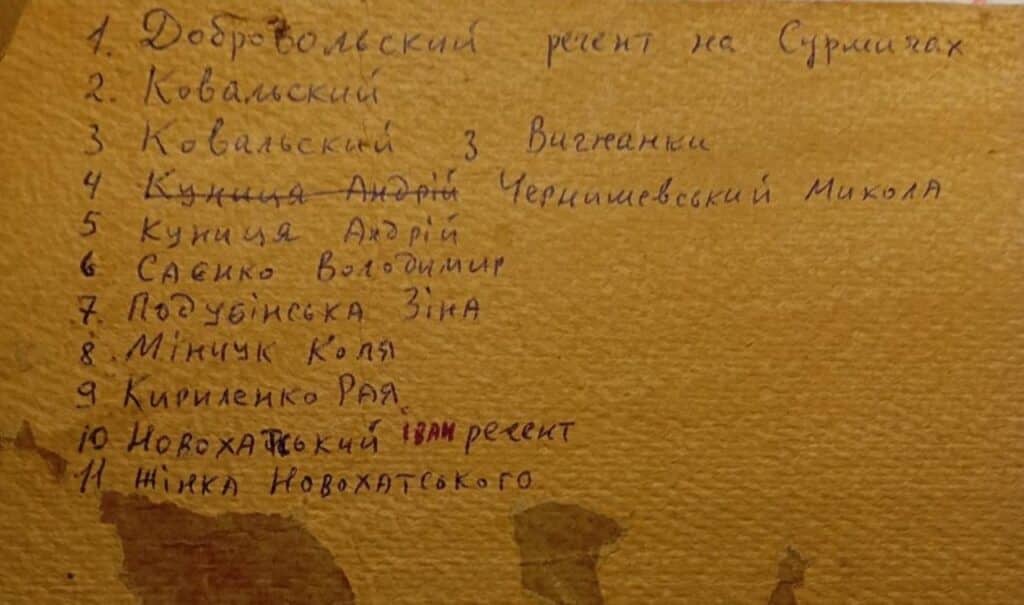 1. Добровольский регент на Сурмичах
2. Ковальский
3 Ковальский з Вигнанки
4 Куниця Андрій Чернишевський Микола
5 Куниця Андрій
6 Саєнко Володимир
7. Подубінська Зіна
8. Мінчук Коля
9 Кириленко Рая
10 Новохатський Іван регент
11 Жінка Новохатського